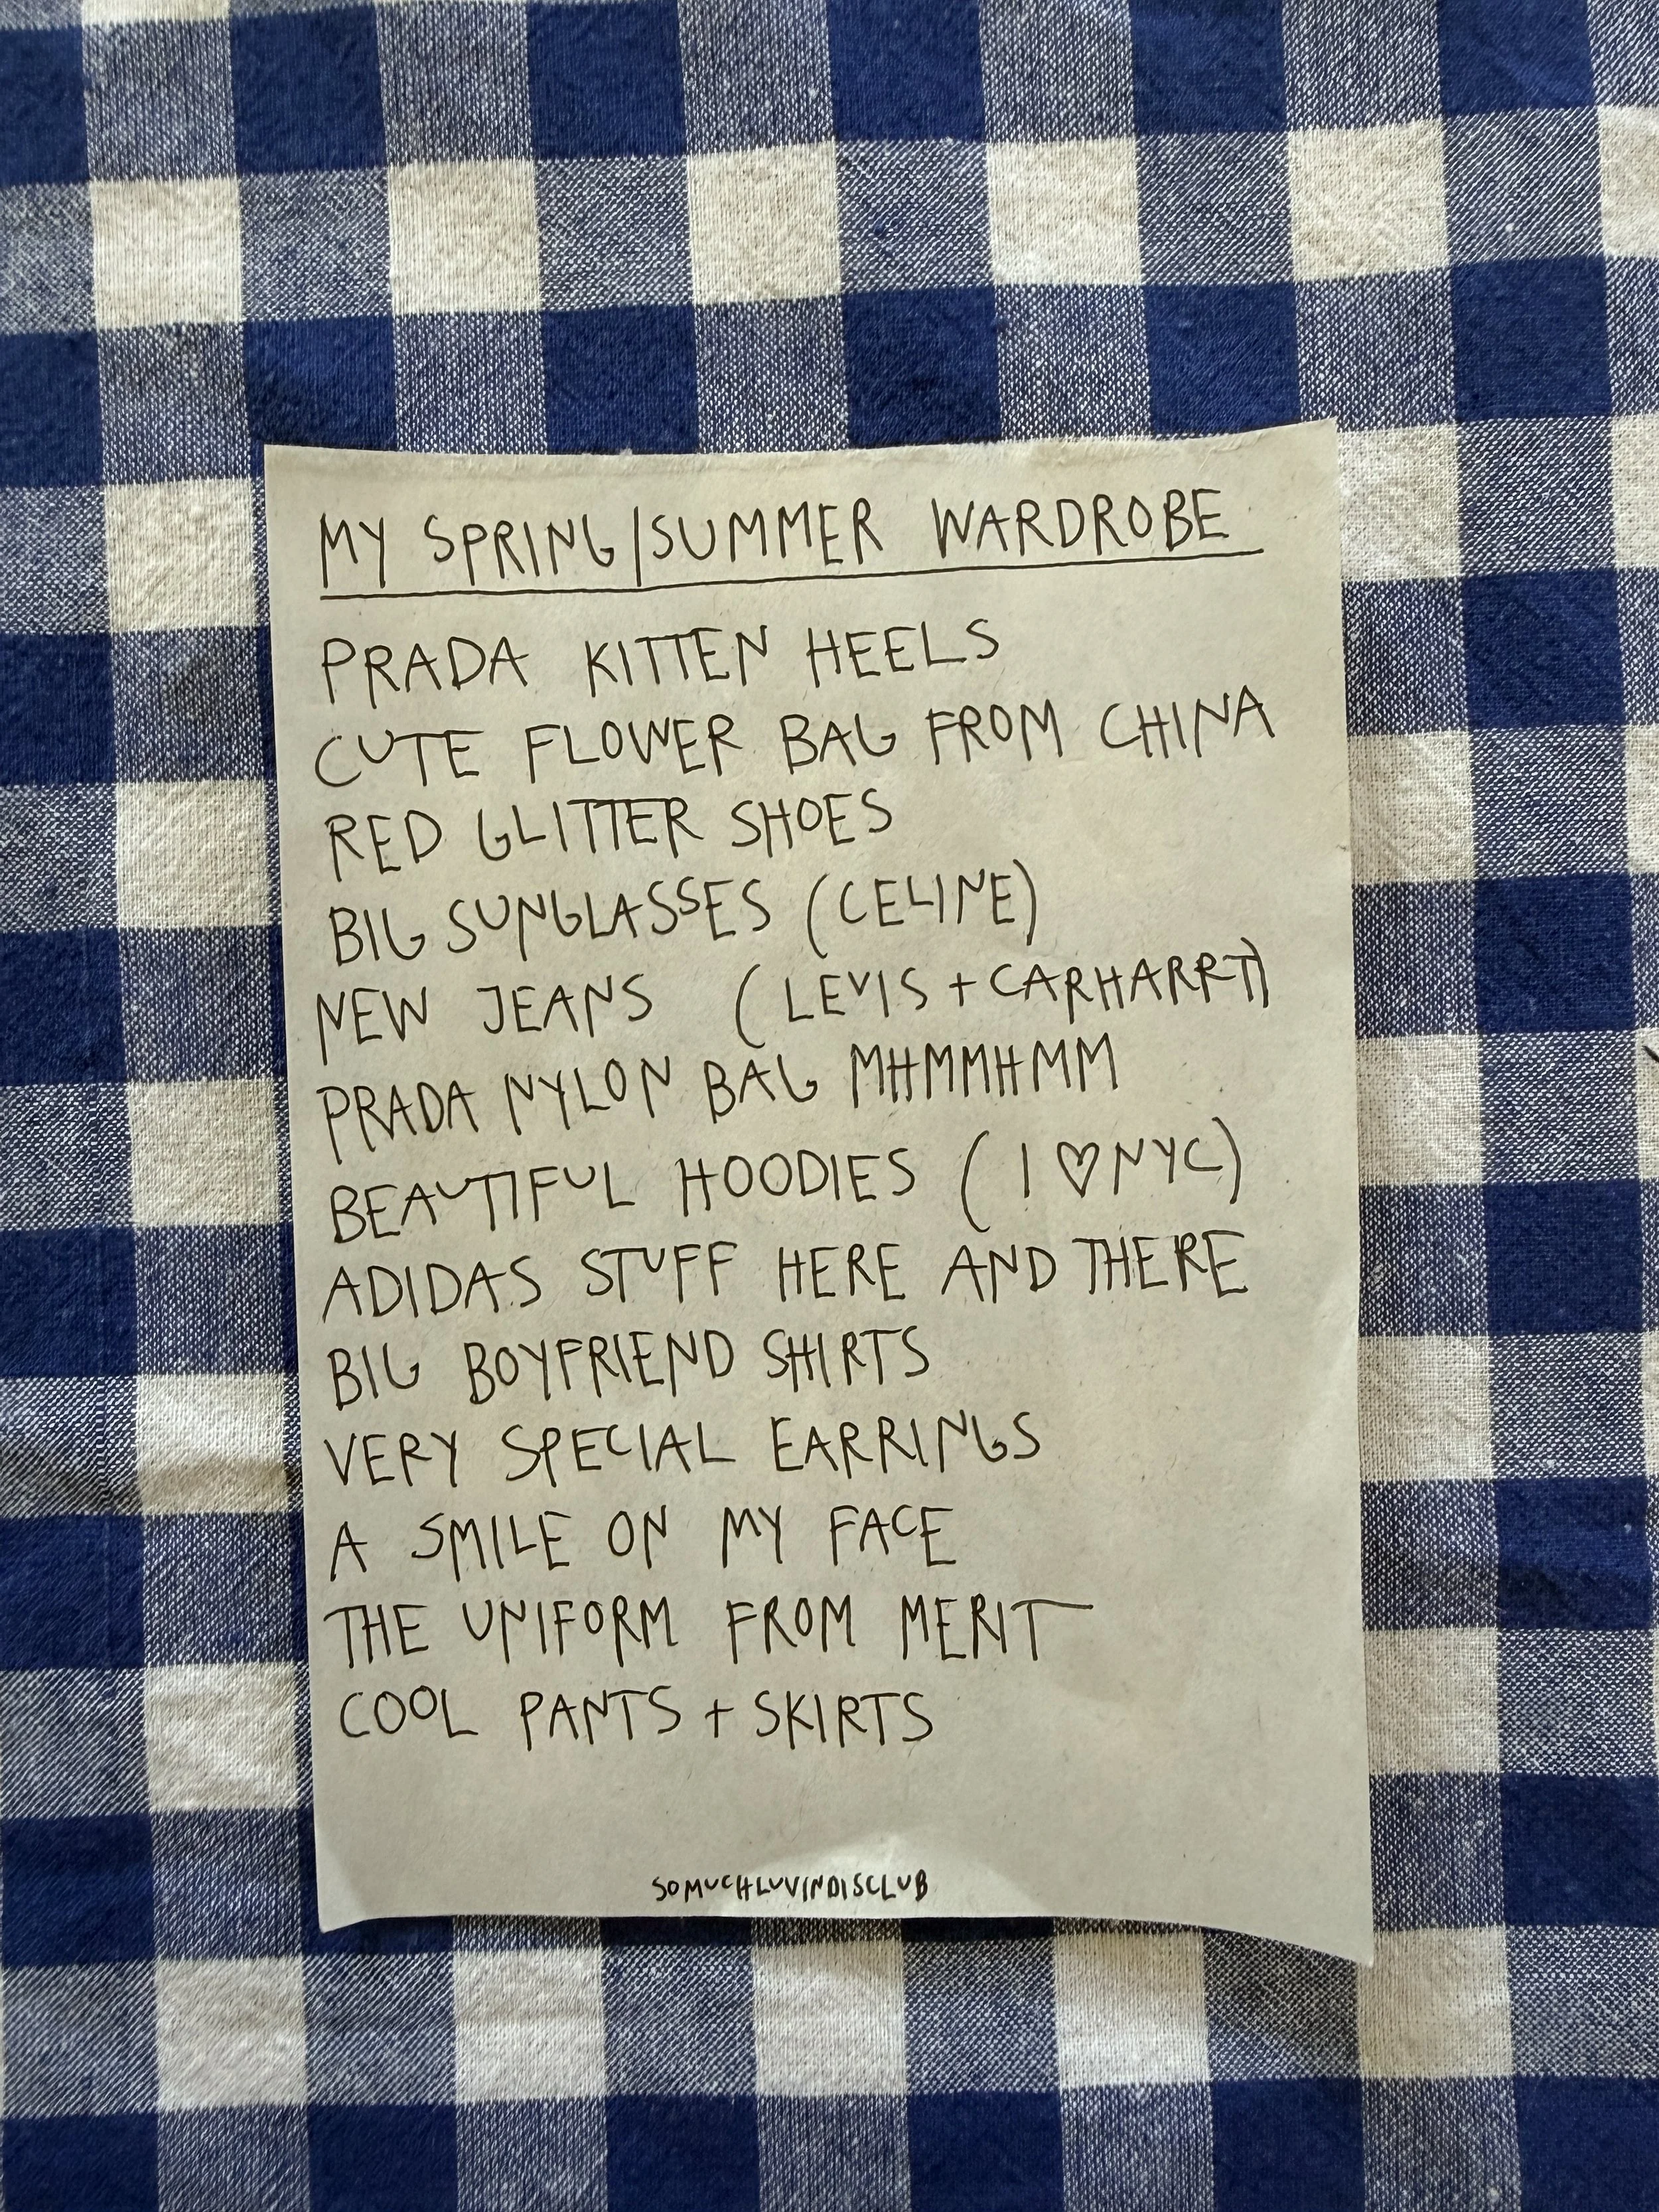 MY SPRING/SUMMER WARDROBE
PRADA KITTEN HEELS
CUTE FLOWER BAG FROM CHINA
RED GLITTER SHOES
BIG SUNGLASSES (CELINE)
NEW JEANS (LEVIS + CARHARRT)
PRADA NYLON BAG MHMMHMM
BEAUTIFUL HOODIES (I ♡ NYC)
ADIDAS STUFF HERE AND THERE
BIG BOYFRIEND SHIRTS
VERY SPECIAL EARRINGS
A SMILE ON MY FACE
THE UNIFORM FROM MERIT
COOL PANTS + SKIRTS
SOMUCHLUVINDISCLUB